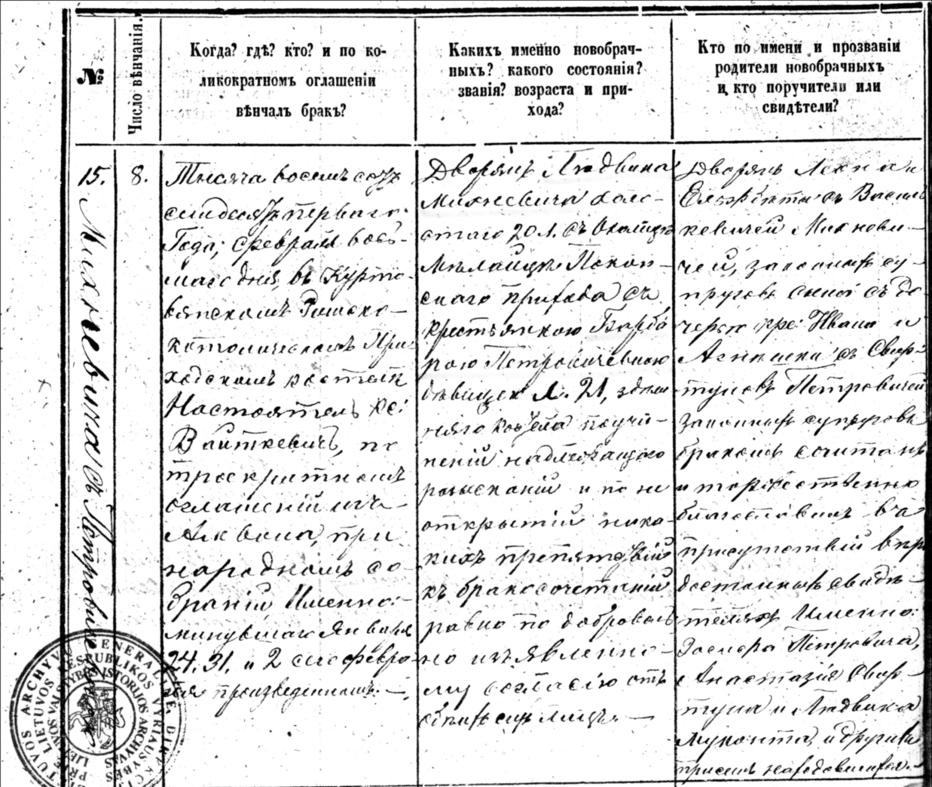 №
Число вѣнчанія.
Когда? гдѣ? кто? и по ко-
ликократномъ оглашеніи
вѣнчалъ бракъ?
Какихъ именно новобрач-
ныхъ? какого состоянія?
званія? возраста и при-
хода?
Кто по имени и прозванію
родители новобрачныхъ
и кто поручители или
свидѣтели?
15.
Михневича съ Петровичевною
8.
Тысяча восемь сотъ
семдесятъ перваго
Года, февраля вось-
маго дня, въ Курто-
вянскомъ Римско-
католическомъ При-
ходскомъ костелѣ
Настоятель Кс:
Войткевичъ, по
троекратномъ
оглашеніи изъ
Амвона, при
народномъ со-
браніи Именно:
минувшаго Января
24. 31. и 2 сего Февра-
ля произведенномъ. —
Дворянъ Людвика
Михневича холо-
стаго 20 л. съ
скаго прихода съ
крестьянкою Барба-
рою Петровичевною
дѣвицею Л. 21, здѣш-
няго костела по учи-
неніи надлежащаго
розысканія и по не
открытіи ника-
кихъ препятствій
къ бракосочетанію
равно по доброволь-
но изъявленно-
му согласію отъ
обѣихъ сихъ лицъ. —
Дворянъ Леона и
съ Василь-
кевичей Михневи-
чей, законныхъ су-
пруговъ сына съ до-
черью кре: Ивана и
Агнешки съ Свир-
туновъ Петровичей
законныхъ супруговъ
бракомъ сочеталъ
и торжественно
благословилъ въ
присутствіи вѣро-
достойныхъ свидѣ-
телей Именно:
Петровича,
Анастазія Свир-
туна и Людвика
и другихъ
при семъ находившихся. —
LIETUVOS ARCHYVŲ GENERAL
LIETUVOS VALSTYBĖS ISTORIJOS ARCHYVAS